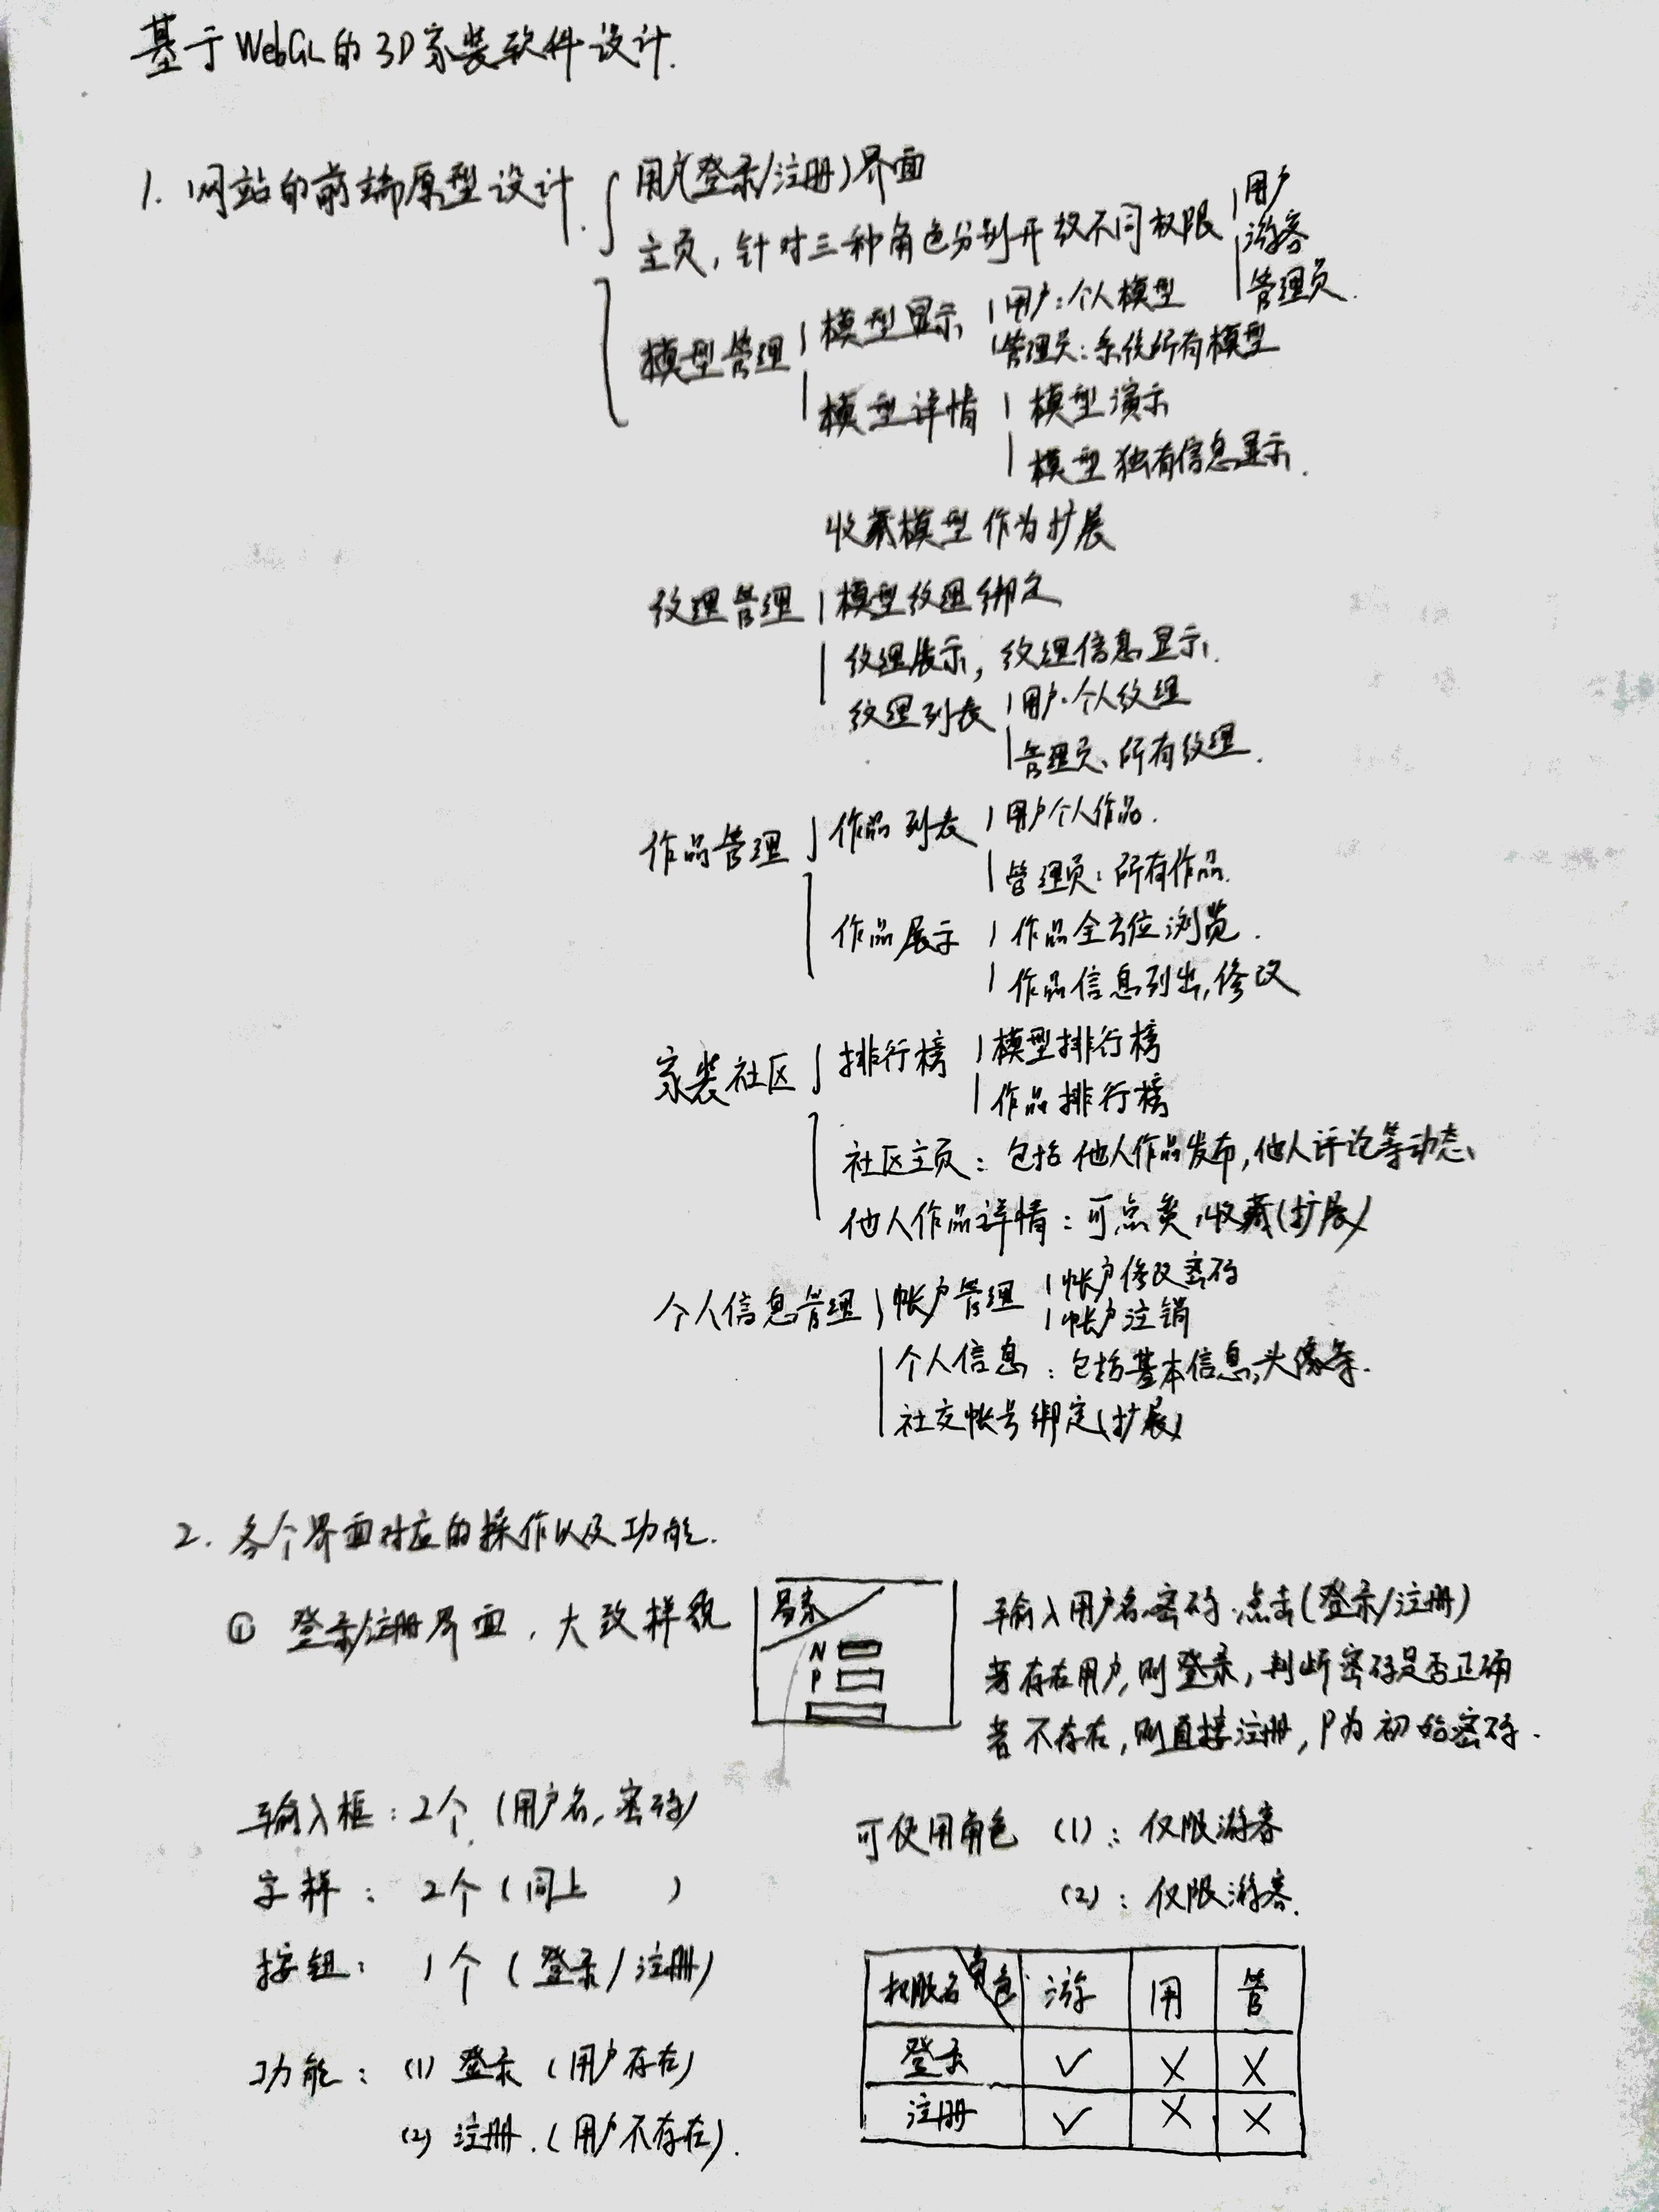 基于WebGL的3D家装软件设计.
1. 网站的前端原型设计.
用户(登录/注册)界面
主页, 针对三种角色分别开放不同权限
用户
游客
管理员.
模型管理
模型显示
用户:个人模型
管理员:系统所有模型
模型详情
模型演示
模型独有信息显示.
收藏模型作为扩展
纹理管理
模型纹理绑定
纹理展示, 纹理信息显示.
纹理列表
用户.个人纹理
管理员、所有纹理.
作品管理
作品列表
用户个人作品.
管理员:所有作品.
作品展示
作品全方位浏览.
作品信息列出,修改
家装社区
排行榜
模型排行榜
作品排行榜
社区主页:包括他人作品发布,他人评论等动态、
他人作品详情:可点赞,收藏(扩展)
个人信息管理
帐户管理
帐户修改密码
帐户注销
个人信息:包括基本信息,头像等.
社交帐号绑定(扩展)
2. 各个界面对应的操作以及功能.
① 登录/注册界面, 大致样貌
N
P
输入用户名.密码.点击(登录/注册)
若存在用户,则登录,判断密码是否正确
若不存在,则直接注册,P为初始密码.
输入框:2个(用户名,密码)
字样: 2个(同上 )
按钮: 1个(登录/注册)
功能: (1) 登录 (用户存在)
(2) 注册.(用户不存在).
可使用角色 (1):仅限游客
(2):仅限游客.
权限名 角色 游 用 管
登录 ✓ × ×
注册 ✓ × ×